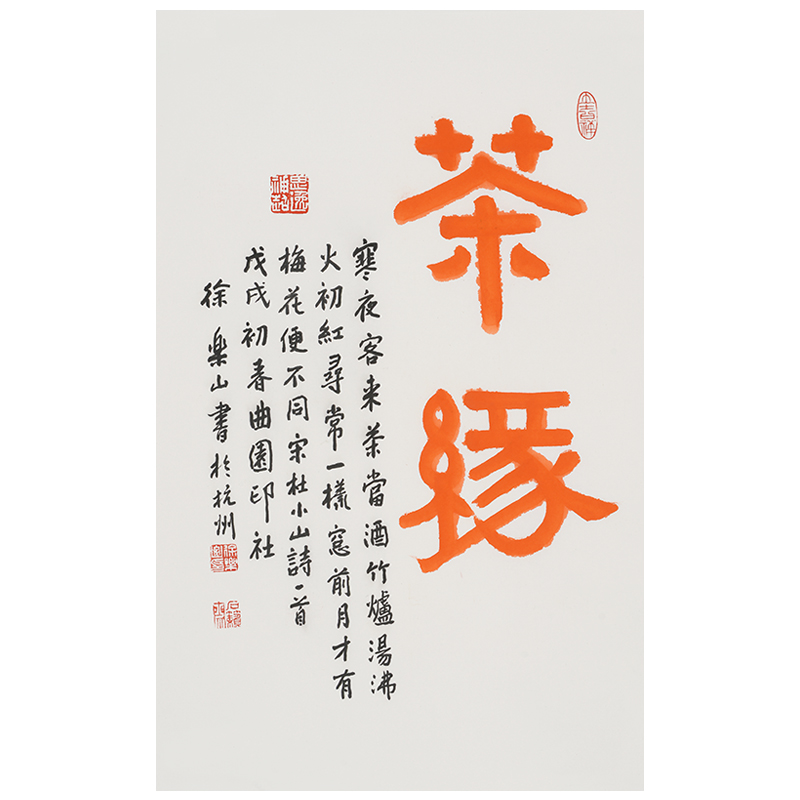 茶緣
寒夜客来茶當酒竹爐湯沸
火初紅尋常一樣窓前月才有
梅花便不同宋杜小山詩一首
戊戌初春曲園印社
徐樂山書於杭州